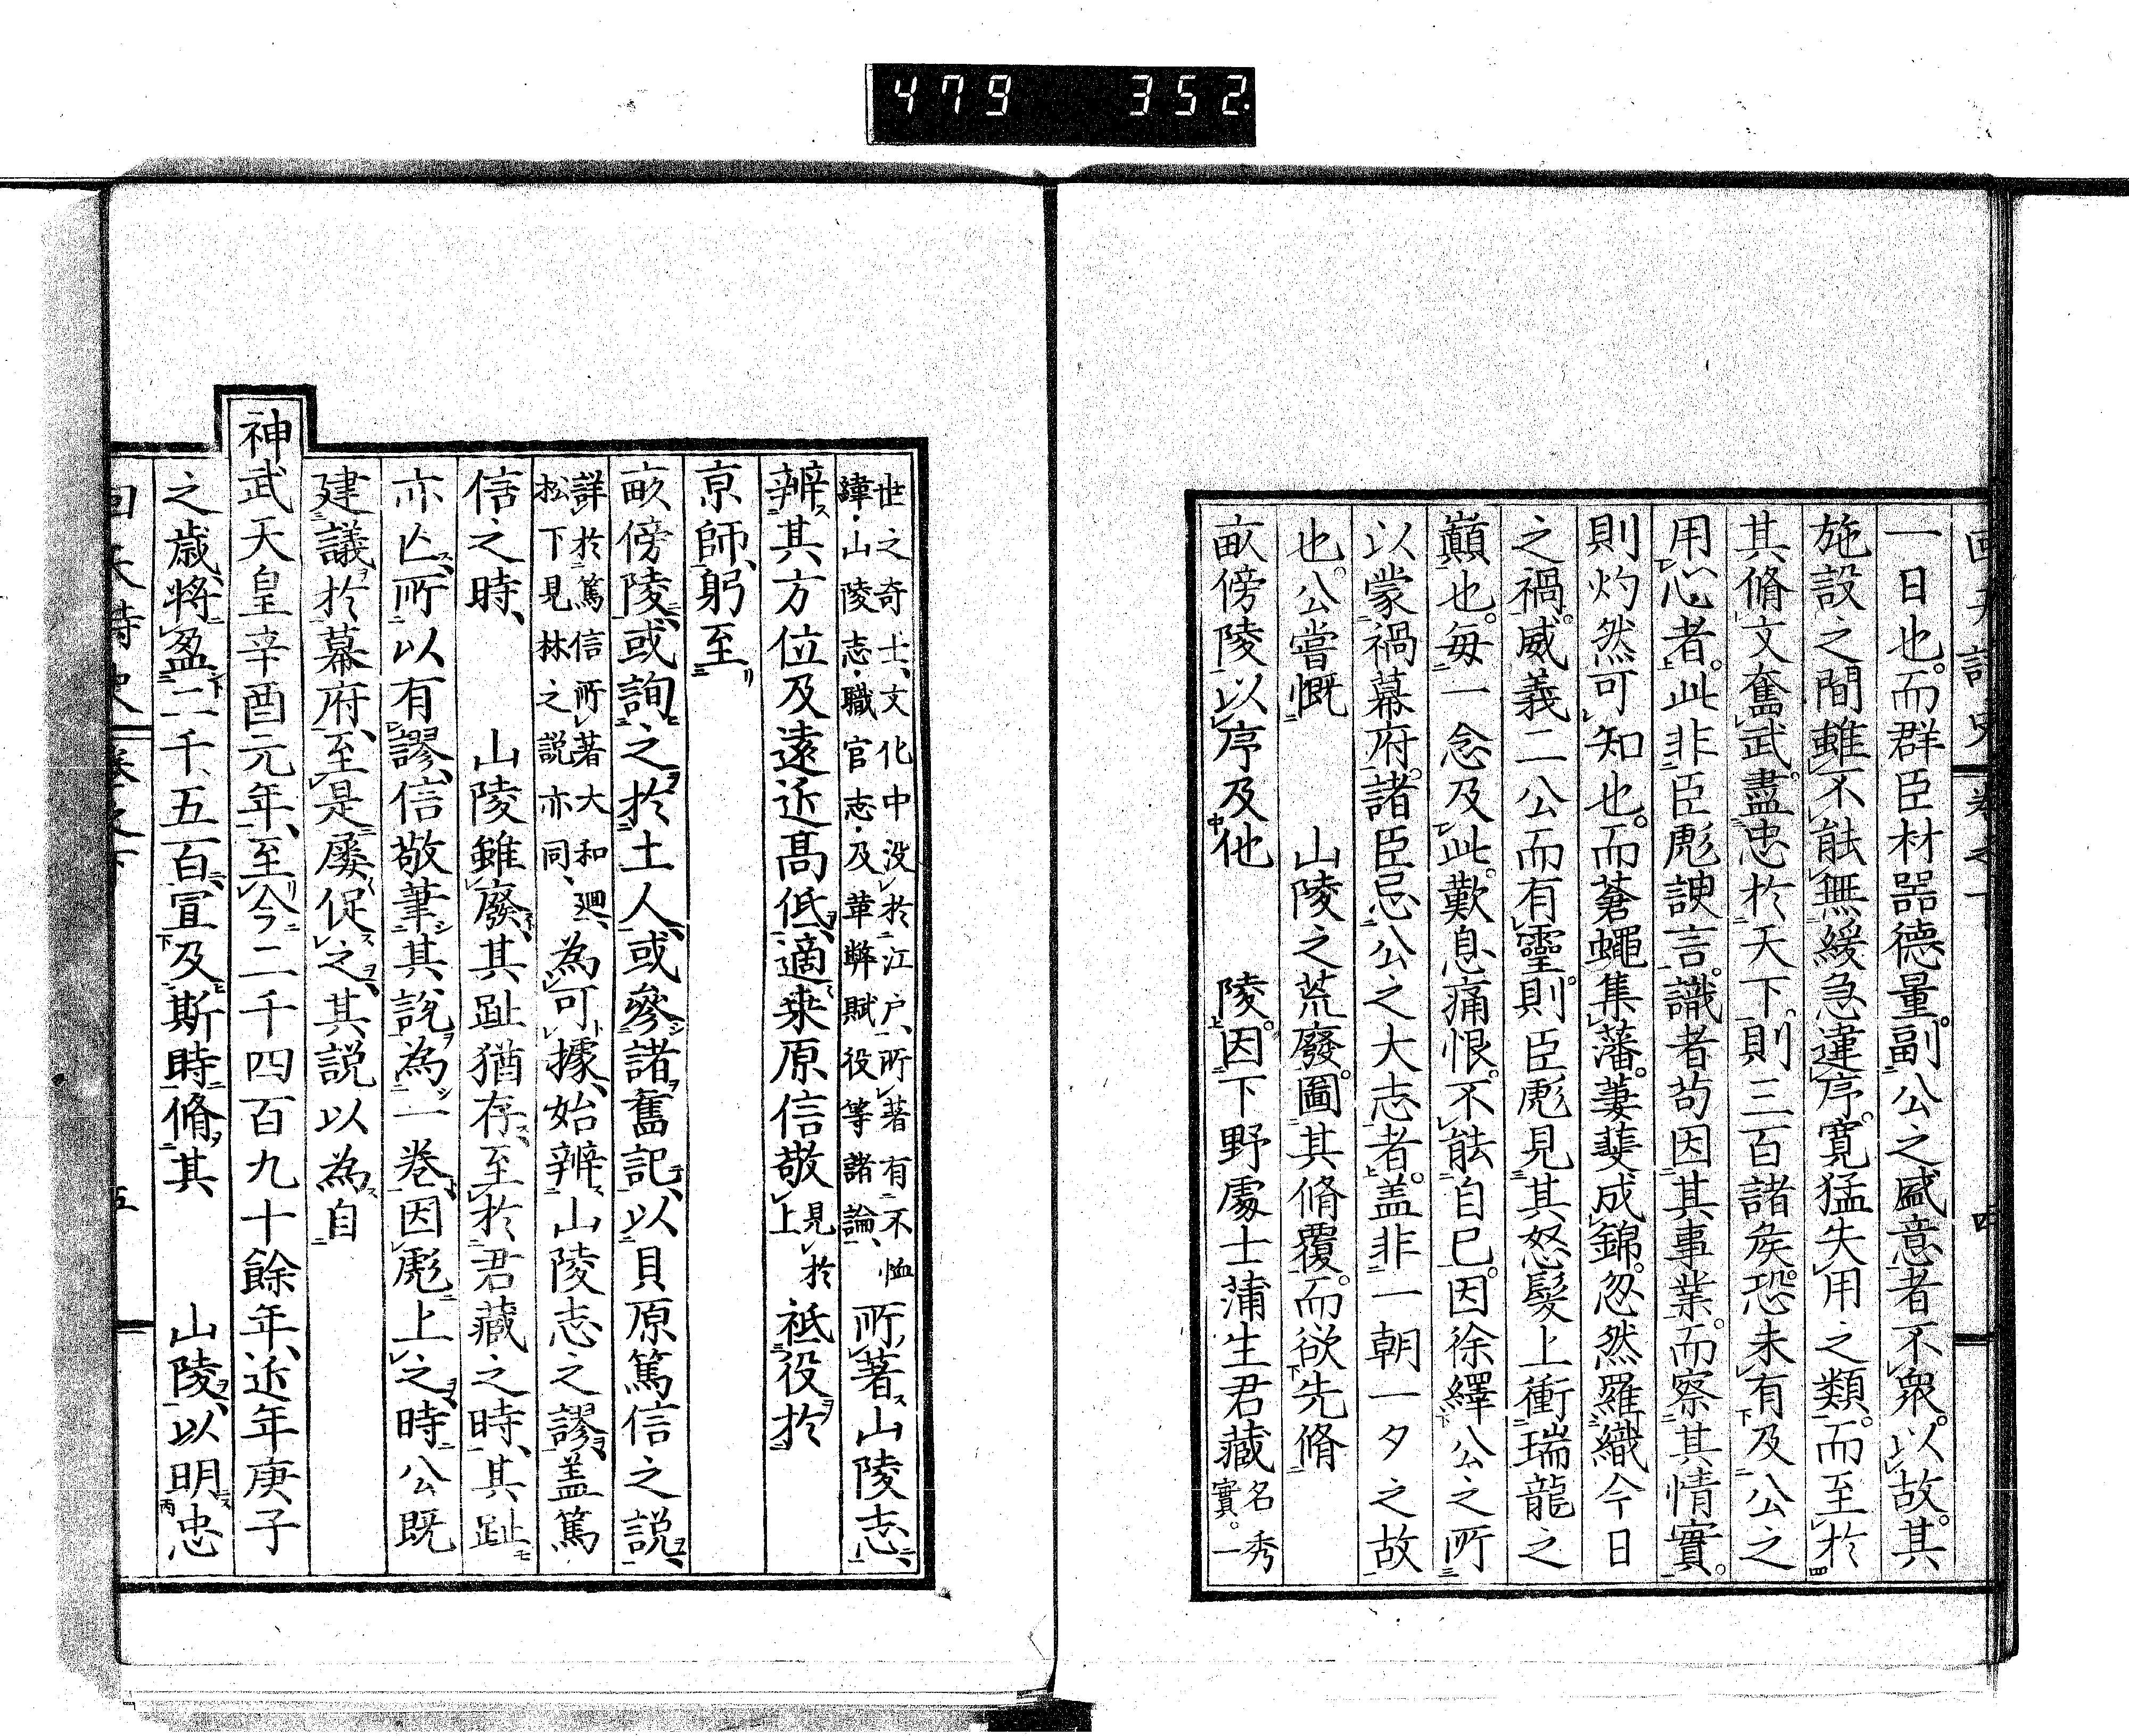 479 352
一日也。而群臣材器德量。副公之盛意者不衆。以故。其
施設之間雖不能無緩急違序。寛猛失用之類。而至於
其脩文奮武。盡忠於天下。則三百諸矦。恐未有及公之
用心者。此非臣彪諛言。識者苟因其事業。而察其情實。
則灼然可知也。而蒼蠅集藩。萋斐成錦。忽然羅織今日
之禍。威義二公而有靈。則臣彪見其怒髮上衝瑞龍之
巓也。毎一念及此。歎息痛恨。不能自已。因徐繹公之所
以蒙禍幕府。諸臣忌公之大志者。盖非一朝一夕之故
也。公嘗慨　山陵之荒廢。圖其脩覆。而欲先脩
畝傍陵以序及他　陵。因下野處士蒲生君藏名秀實。一
世之奇士、文化中没於江戸、所著有不恤
緯・山陵志・職官志・及革弊賦役等諸論、所著山陵志、
辨其方位及遠近高低、適桒原信敬見於上祗役於
京師、躬至
畝傍陵、或詢之於土人、或參諸舊記、以貝原篤信之説、
詳於篤信所著大和廻、
松下見林之説亦同、為可據、始辨山陵志之謬、盖篤
信之時、　山陵雖廢、其趾猶存、至於君藏之時、其趾
亦亾、所以有謬、信敬筆其說為一卷、因彪上之、時公既
建議於幕府、至是屡促之、其説以為自
神武天皇辛酉元年、至今二千四百九十餘年、近年庚子
之歳、將盈二千五百、宜及斯時脩其　山陵、以明忠